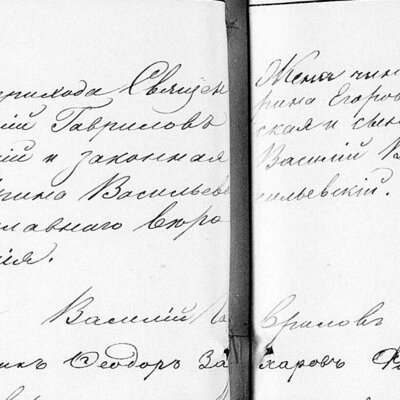 прихода Священ
ій Гавриловъ
ій и законная
рина Васильев
славнаго вѣро
нія.
Жена чин
рина Егоров
ская и сын
Василій В
сильевскій.
Василій Гавриловъ
икъ Ѳеодоръ Захаровъ